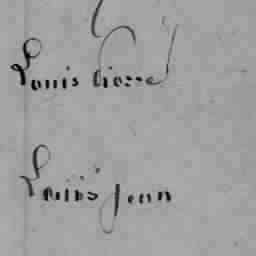 Louis Pierre
Louis Jean